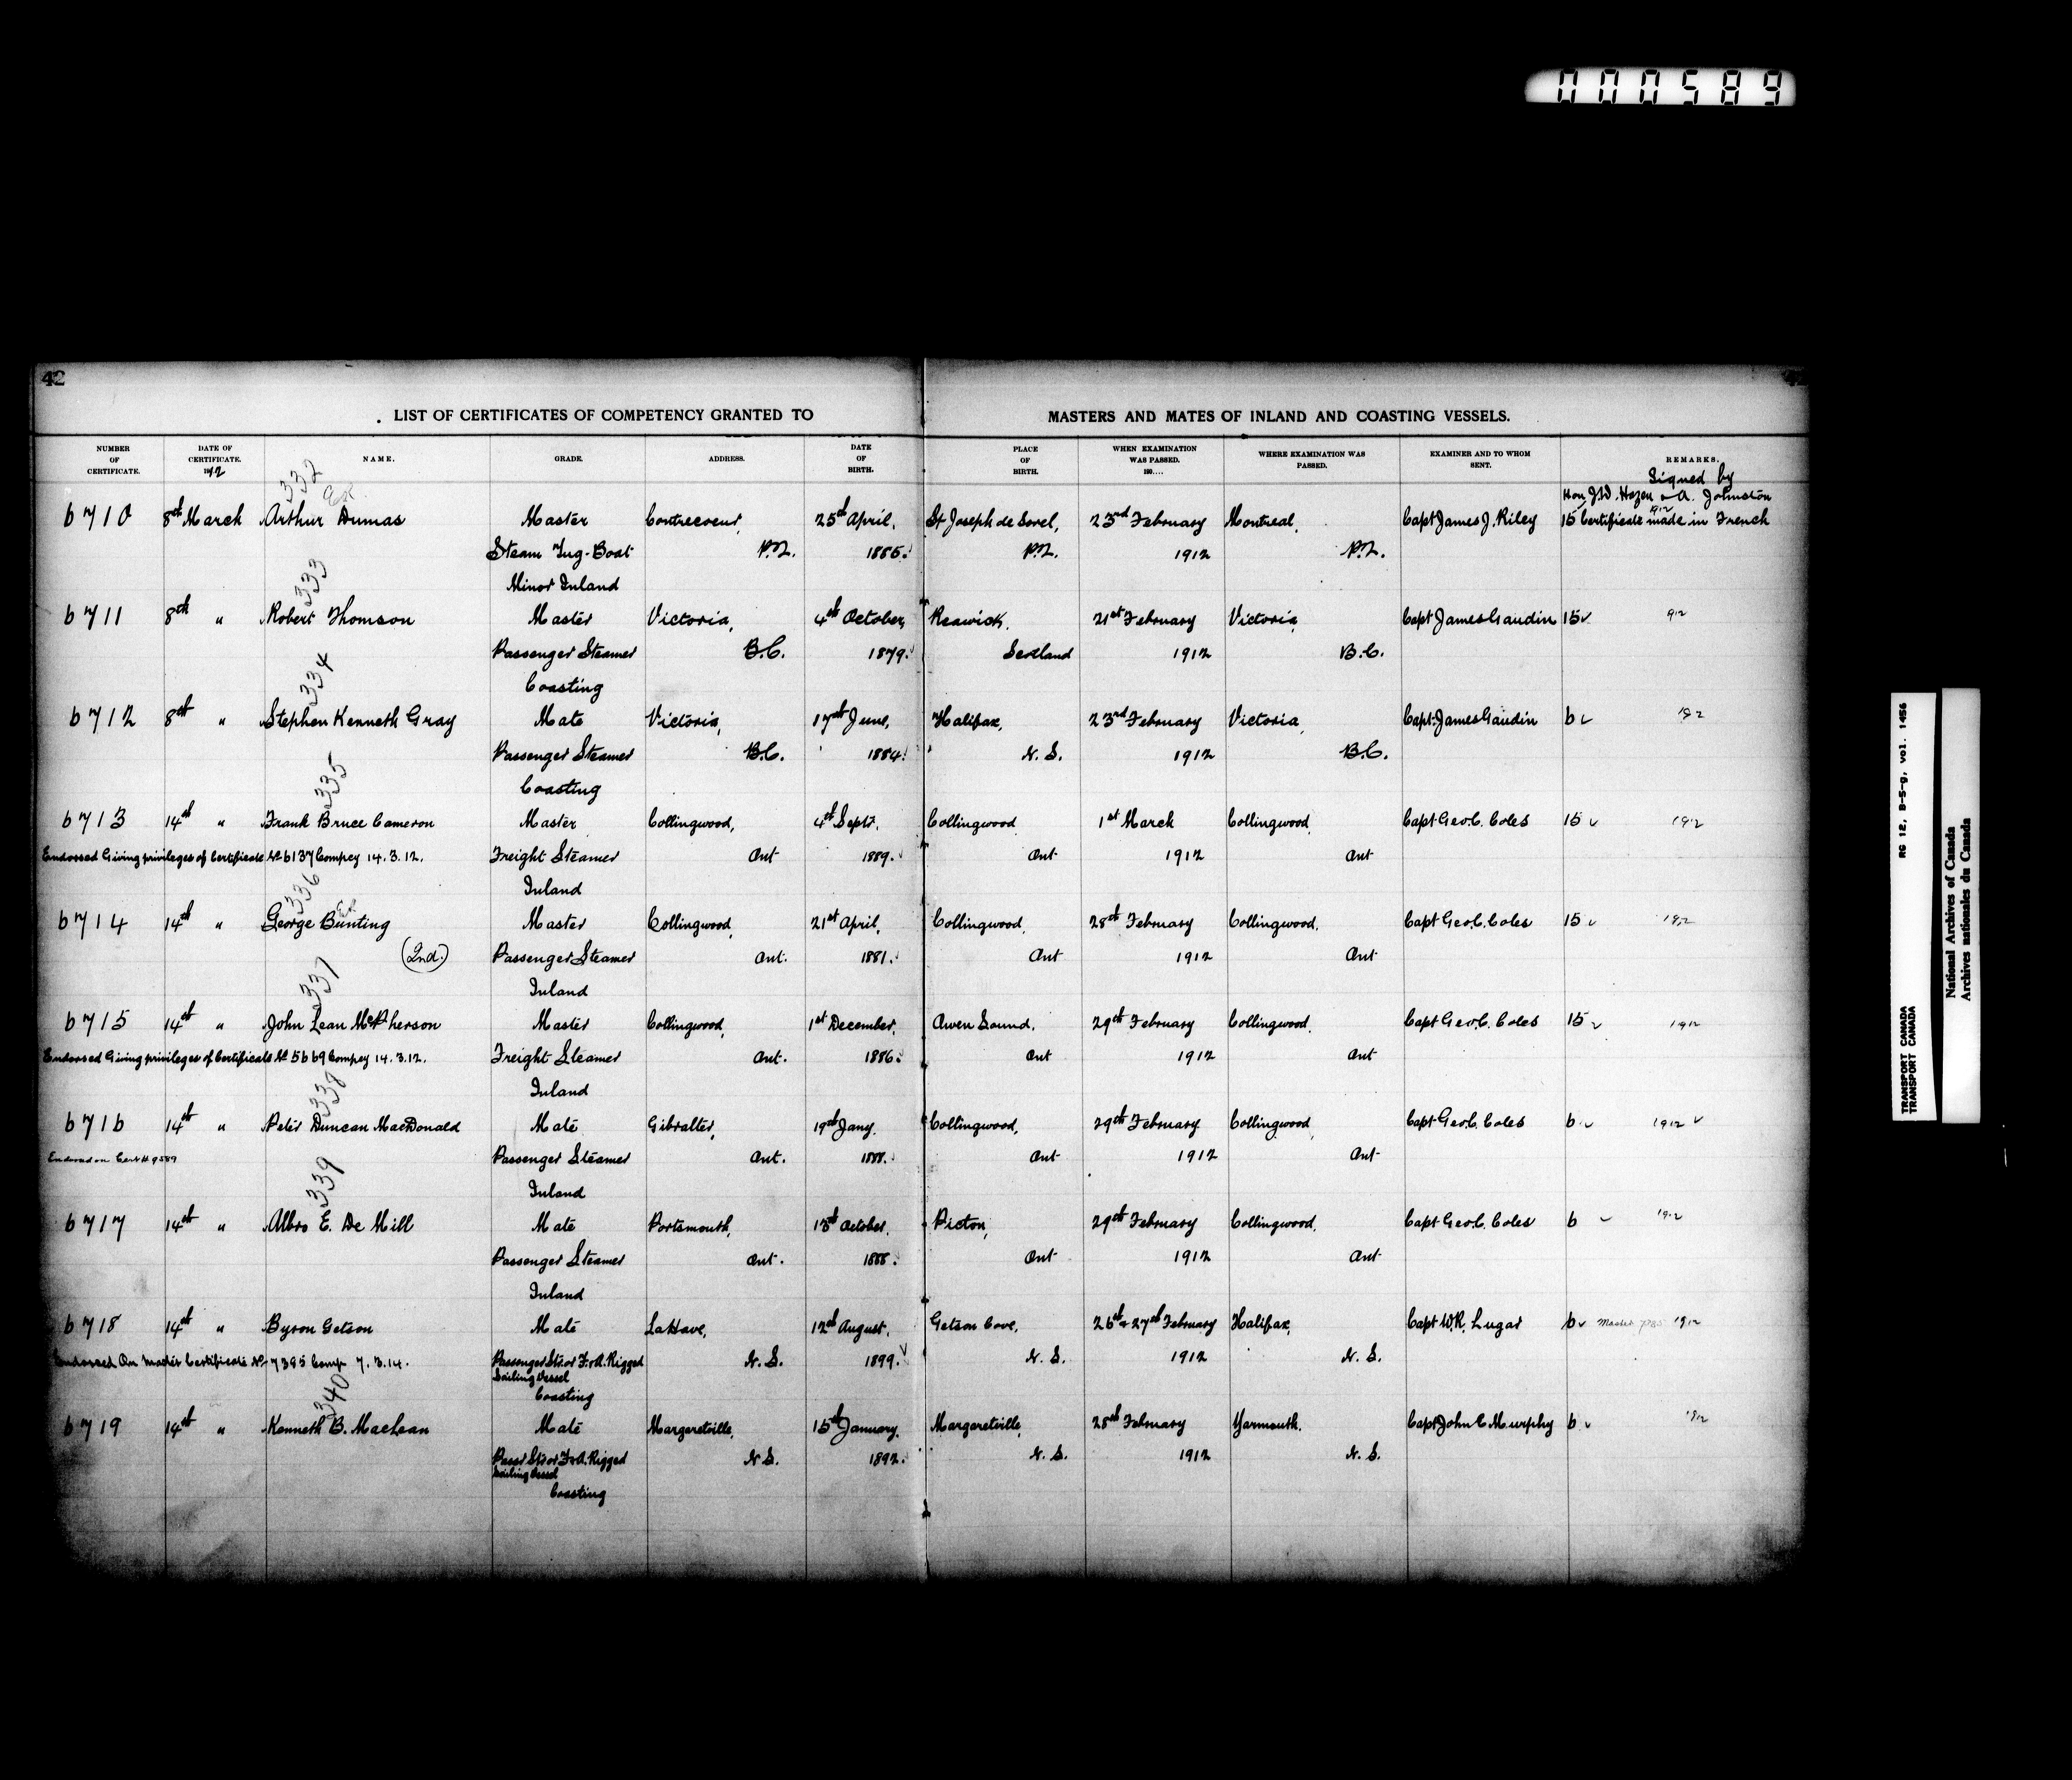 000589
42
LIST OF CERTIFICATES OF COMPETENCY GRANTED TO MASTERS AND MATES OF INLAND AND COASTING VESSELS.
NUMBER OF CERTIFICATE. DATE OF CERTIFICATE. 1912 NAME. GRADE. ADDRESS. DATE OF BIRTH. PLACE OF BIRTH. WHEN EXAMINATION WAS PASSED. 190.... WHERE EXAMINATION WAS PASSED. EXAMINER AND TO WHOM SENT. REMARKS.
Signed by
332 Hon J.D. Hazen & A. Johnston
6710 8th March Arthur Dumas Master Contrecoeur, 25th April, St Joseph de Sorel, 23rd February Montreal, Capt James J. Riley 15 Certificate made in French
Steam Tug-Boat P.Q. 1885. P.Q. 1912 P.Q.
Minor Inland
333
6711 8th " Robert Thomson Master Victoria, 4th October, Reawick, 21st February Victoria, Capt James Gaudin 15 912
Passenger Steamer B.C. 1879. Scotland 1912 B.C.
Coasting
334
6712 8th " Stephen Kenneth Gray Mate Victoria, 17th June, Halifax, 23rd February Victoria, Capt James Gaudin 6 1912
Passenger Steamer B.C. 1884. N.S. 1912 B.C.
Coasting
335
6713 14th " Frank Bruce Cameron Master Collingwood, 4th Septr. Collingwood 1st March Collingwood, Capt Geo. C. Coles 15 1912
Endorsed Giving privileges of Certificate No 6137 Compey 14.3.12. Freight Steamer Ont 1889. Ont 1912 Ont
Inland
336
6714 14th " George Bunting Master Collingwood, 21st April, Collingwood, 28th February Collingwood, Capt Geo. C. Coles 15 1912
(2nd.) Passenger Steamer Ont. 1881. Ont 1912 Ont
Inland
337
6715 14th " John Lean McPherson Master Collingwood, 1st December, Owen Sound, 29th February Collingwood, Capt Geo. C. Coles 15 1912
Endorsed Giving privileges of Certificate No 5669 Compey 14.3.12. Freight Steamer Ont. 1886. Ont 1912 Ont
Inland
338
6716 14th " Peter Duncan MacDonald Mate Gibralter, 19th Jany. Collingwood, 29th February Collingwood, Capt Geo. C. Coles 6 1912
Endorsed on Cert # 9589 Passenger Steamer Ont. 1888. Ont 1912 Ont
Inland
339
6717 14th " Albro E. De Mill Mate Portsmouth, 13th October, Picton, 29th February Collingwood, Capt Geo. C. Coles 6 1912
Passenger Steamer Ont. 1888. Ont 1912 Ont
Inland
6718 14th " Byron Getson Mate LaHave, 12th August, Getson Cove, 26th & 27th February Halifax, Capt W.R. Lugar 6 Master 1912
Endorsed On Master Certificate No 7395 Comp 7.3.14. Passenger Str. or F. & A. Rigged N.S. 1899. N.S. 1912 N.S.
Sailing Vessel
Coasting
340
6719 14th " Kenneth B. MacLean Mate Margaretville, 15th January, Margaretville, 28th February Yarmouth, Capt John E Murphy 6 1912
Passr Str or F. & A. Rigged N.S. 1892. N.S. 1912 N.S.
Sailing Vessel
Coasting
RG 12, B-5-g, vol. 1456
TRANSPORT CANADA
TRANSPORT CANADA
National Archives of Canada
Archives nationales du Canada